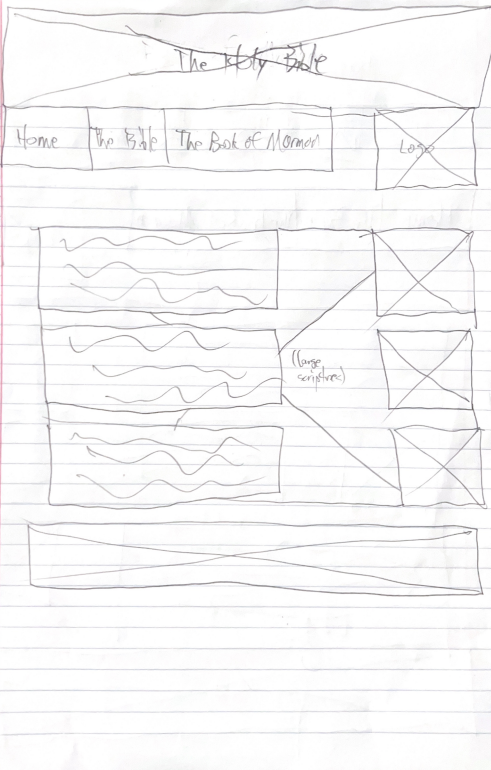 The Holy Bible
Home
The Bible
The Book of Mormon
Logo
(large
scriptures)